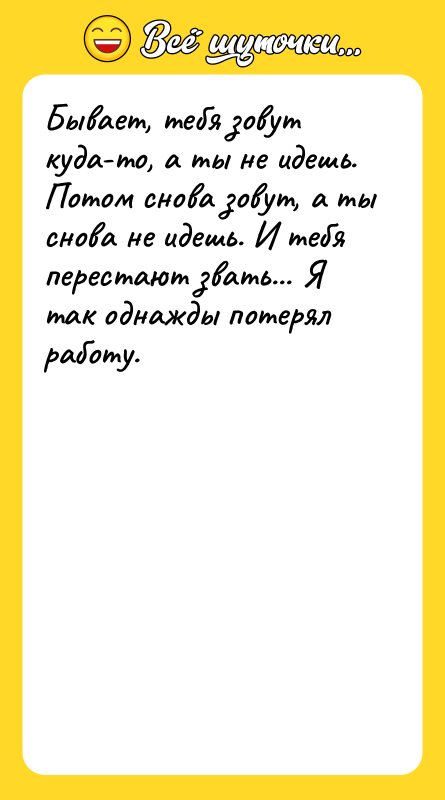 Всё шуточки...
Бывает, тебя зовут
куда-то, а ты не идешь.
Потом снова зовут, а ты
снова не идешь. И тебя
перестают звать... Я
так однажды потерял
работу.